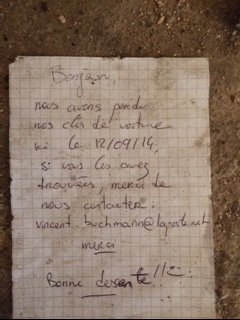 Bonjour,
nous avons perdu
nos clés de voiture
ici le 12/09/14,
si vous les avez
trouvées, merci de
nous contacter :
vincent.buchmann@laposte.net
merci
Bonne descente !! :